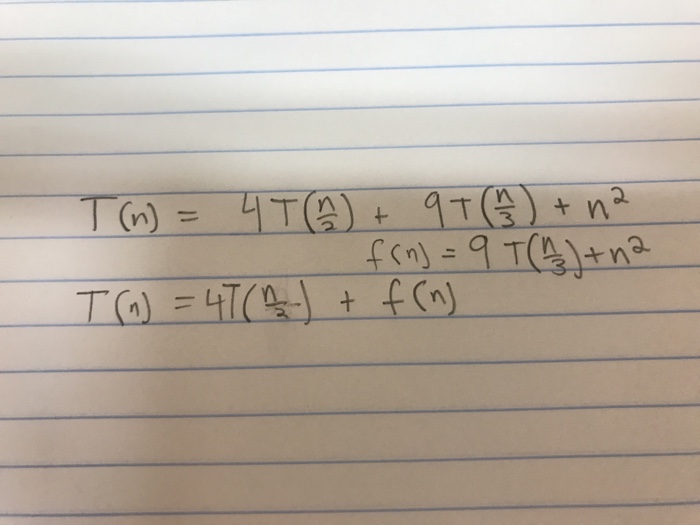 T(n) = 4T(n/2) + 9T(n/3) + n²
f(n) = 9T(n/3) + n²
T(n) = 4T(n/2) + f(n)